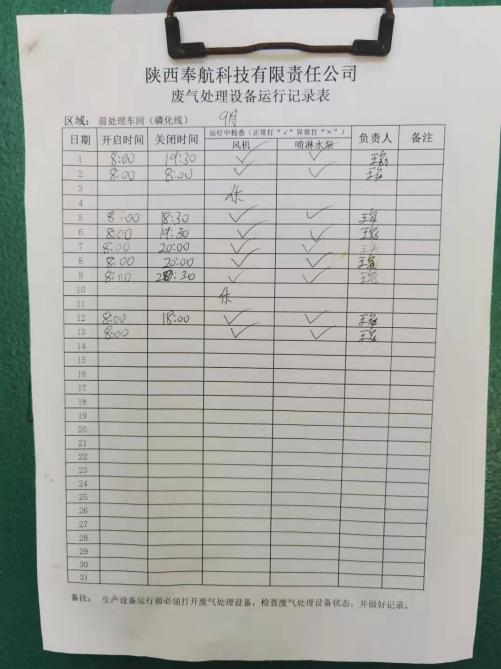 陕西奉航科技有限责任公司
废气处理设备运行记录表
区域：前处理车间（磷化线） 9月
日期 开启时间 关闭时间 运行中检查（正常打“√”异常打“×”） 负责人 备注
风机 喷淋水泵
1 8:00 19:30 √ √
2 8:00 8:00 √ √
3 休
4
5 8:00 18:30 √ √
6 8:00 19:30 √ √
7 8:00 20:00 √ √
8 8:00 20:00 √ √
9 8:00 :30 √ √
10 休
11
12 8:00 18:00 √ √
13 8:00 √ √
14
15
16
17
18
19
20
21
22
23
24
25
26
27
28
29
30
31
备注： 生产设备运行前必须打开废气处理设备，检查废气处理设备状态，并做好记录。